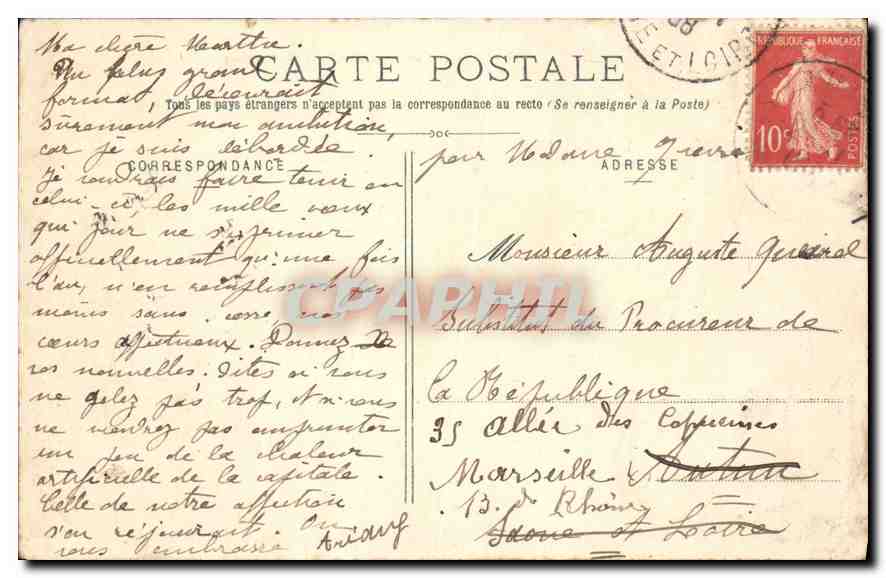 Ma chère Marthe.
Un plus grand
CARTE POSTALE
format, décevrait
Tous les pays étrangers n'acceptent pas la correspondance au recto (Se renseigner à la Poste)
sûrement mon ambition,
car je suis débordée.
CORRESPONDANCE
Je voudrais faire tenir en
celui-ci, les mille vœux
qui pour ne s'exprimer
officiellement qu'une fois
l'an, n'en remplissent pas
moins sans cesse, nos
cœurs affectueux. Donnez
vos nouvelles. Dites si vous
ne gelez pas trop, et si vous
ne viendrez pas emprunter
un peu de la chaleur
artificielle de la capitale.
Celle de notre affection
s'en réjouirait. On
vous embrasse
ET LOIRE
08
REPUBLIQUE FRANÇAISE
10c
POSTES
pour Madame
ADRESSE
Monsieur Auguste Queirel
Substitut du Procureur de
la République
35 allée des Capucines
Marseille Autun
B. du Rhône
Saone et Loire
CPAPHIL